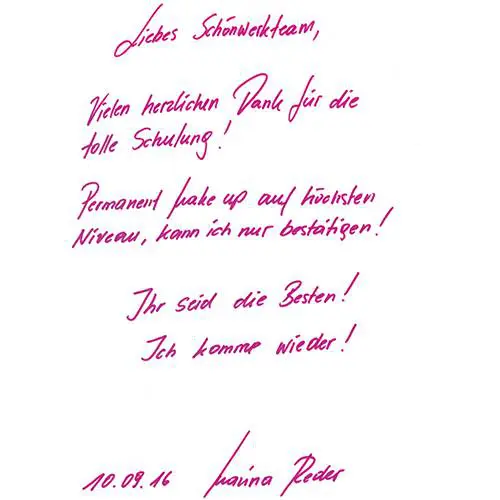 Liebes Schönwerkteam,
Vielen herzlichen Dank für die
tolle Schulung!
Permanent Make up auf höchsten
Niveau, kann ich nur bestätigen!
Ihr seid die Besten!
Ich komme wieder!
10.09.16 Marina Reder